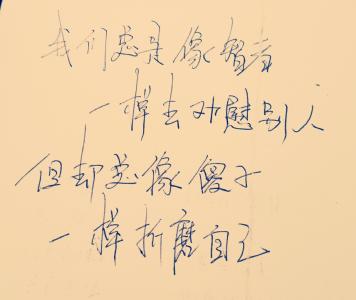 我们总是像智者
一样去劝慰别人
但却总像傻子
一样折磨自己